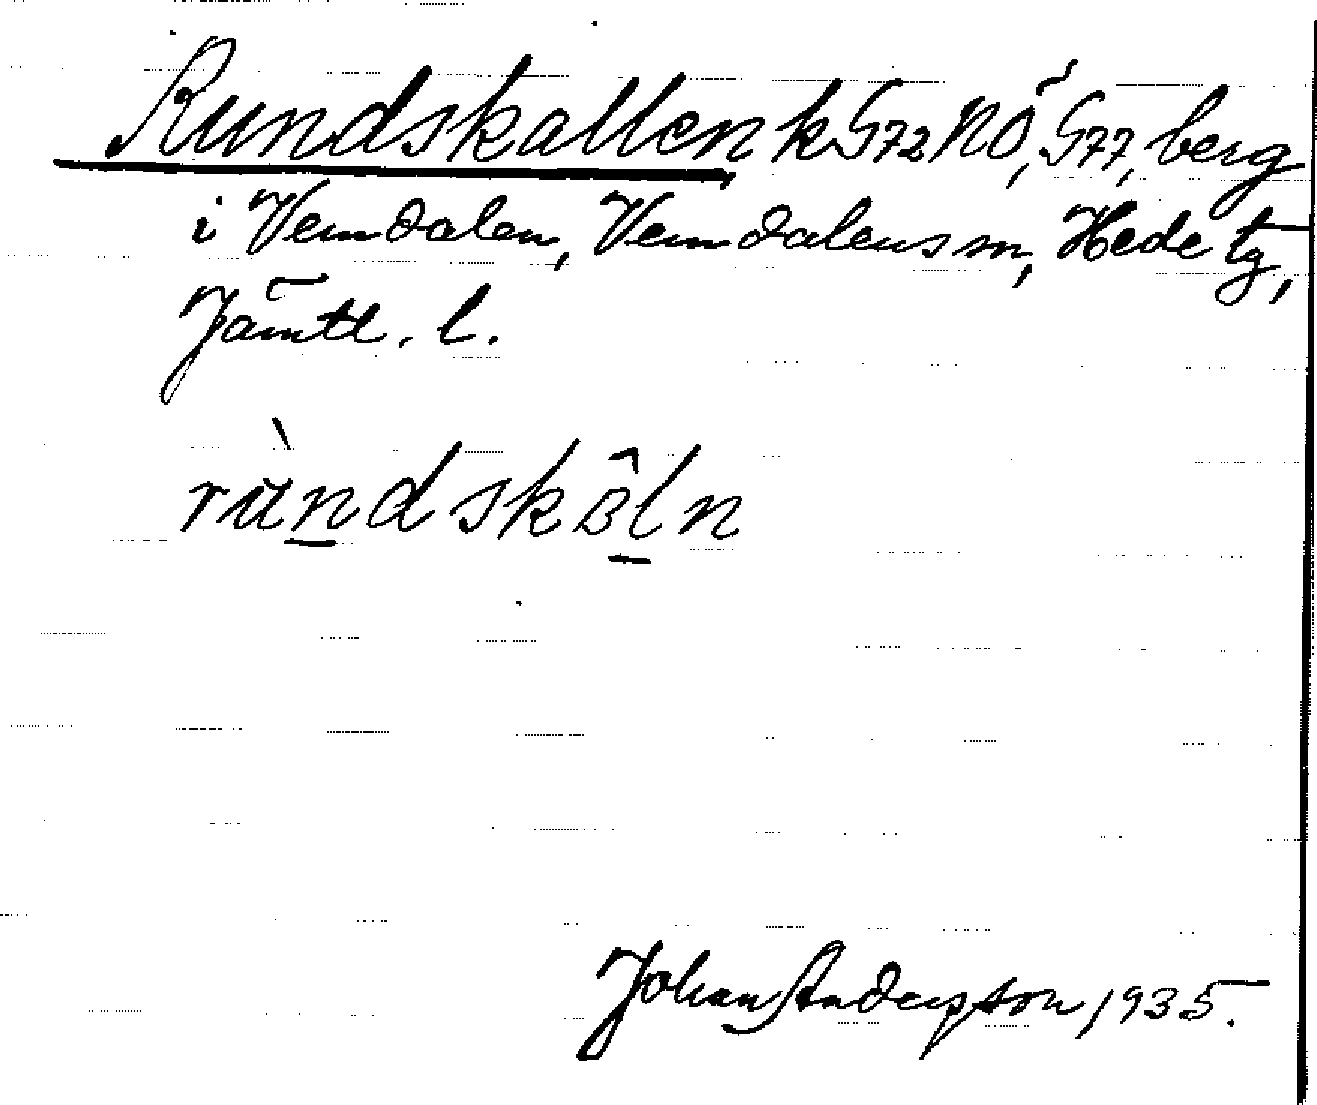 Rundskallen k G72 NÖ, G77, berg
i Vemdalen, Vemdalens sn, Hede tg,
Jämtl. l.
Johan Anderson, 1935.